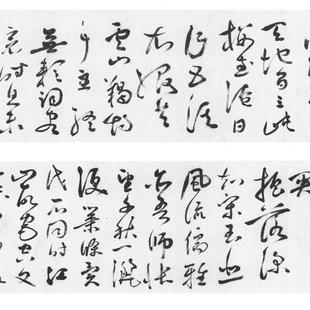 天地間三峽
樓臺淹日
月五溪
衣服共
雲山羯胡
事主終
無賴詞客
哀時且未
搖落深
知宋玉悲
風流儒雅
亦吾師悵
望千秋一灑
淚蕭條異
代不同時江
山故宅空文